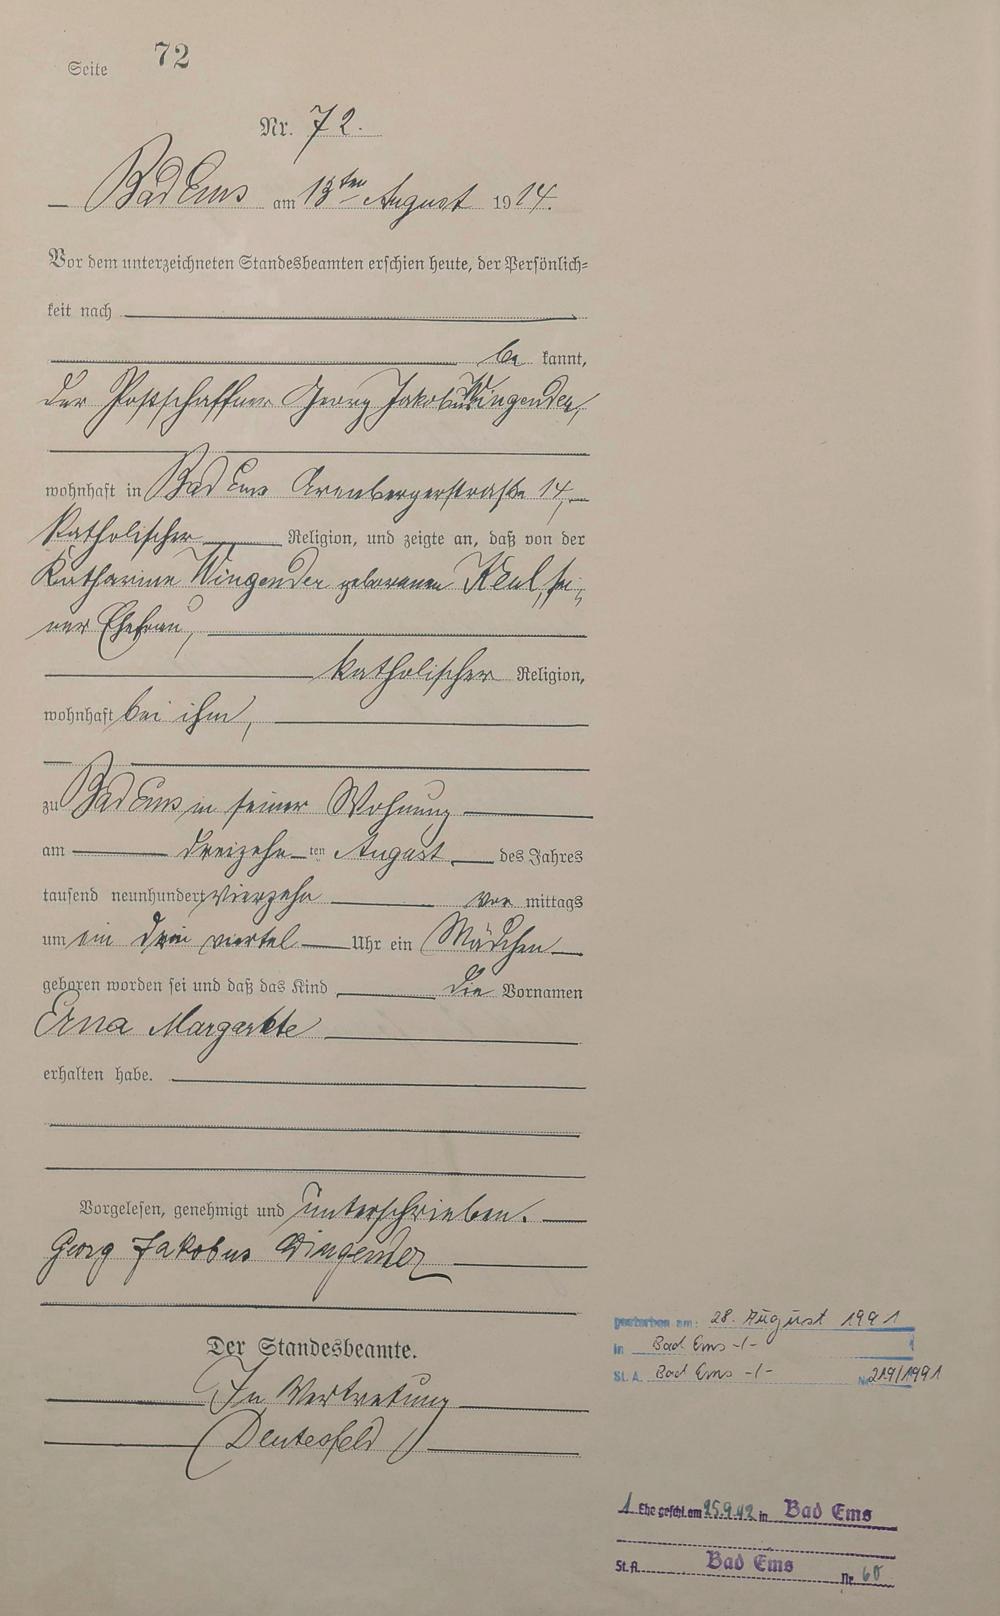 Seite 72
Nr. 72.
Bad Ems am 13ten August 1914.
Vor dem unterzeichneten Standesbeamten erschien heute, der Persönlich=
keit nach
be kannt,
der Postschaffner Georg Jakobus Wingender,
wohnhaft in Bad Ems Arenbergerstraße 14,
katholischer Religion, und zeigte an, daß von der
Katharine Wingender geborenen Keul, sei=
ner Ehefrau,
katholischer Religion,
wohnhaft bei ihm,
zu Bad Ems in seiner Wohnung
am dreizehn ten August des Jahres
tausend neunhundert vierzehn vor mittags
um ein drei viertel Uhr ein Mädchen
geboren worden sei und daß das Kind die Vornamen
Erna Margarete
erhalten habe.
Vorgelesen, genehmigt und unterschrieben.
Georg Jakobus Wingender
Der Standesbeamte.
In Vertretung
Deutesfeld
gestorben am: 28. August 1991
in Bad Ems -/-
St. A. Bad Ems -/- Nr. 219/1991
1. Ehe geschl. am 25.9.42 in Bad Ems
St. A. Bad Ems Nr. 60